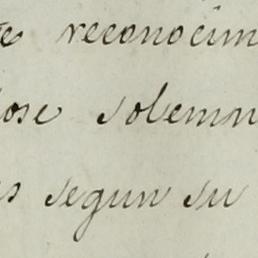 te reconocim
dose solemn
es segun su